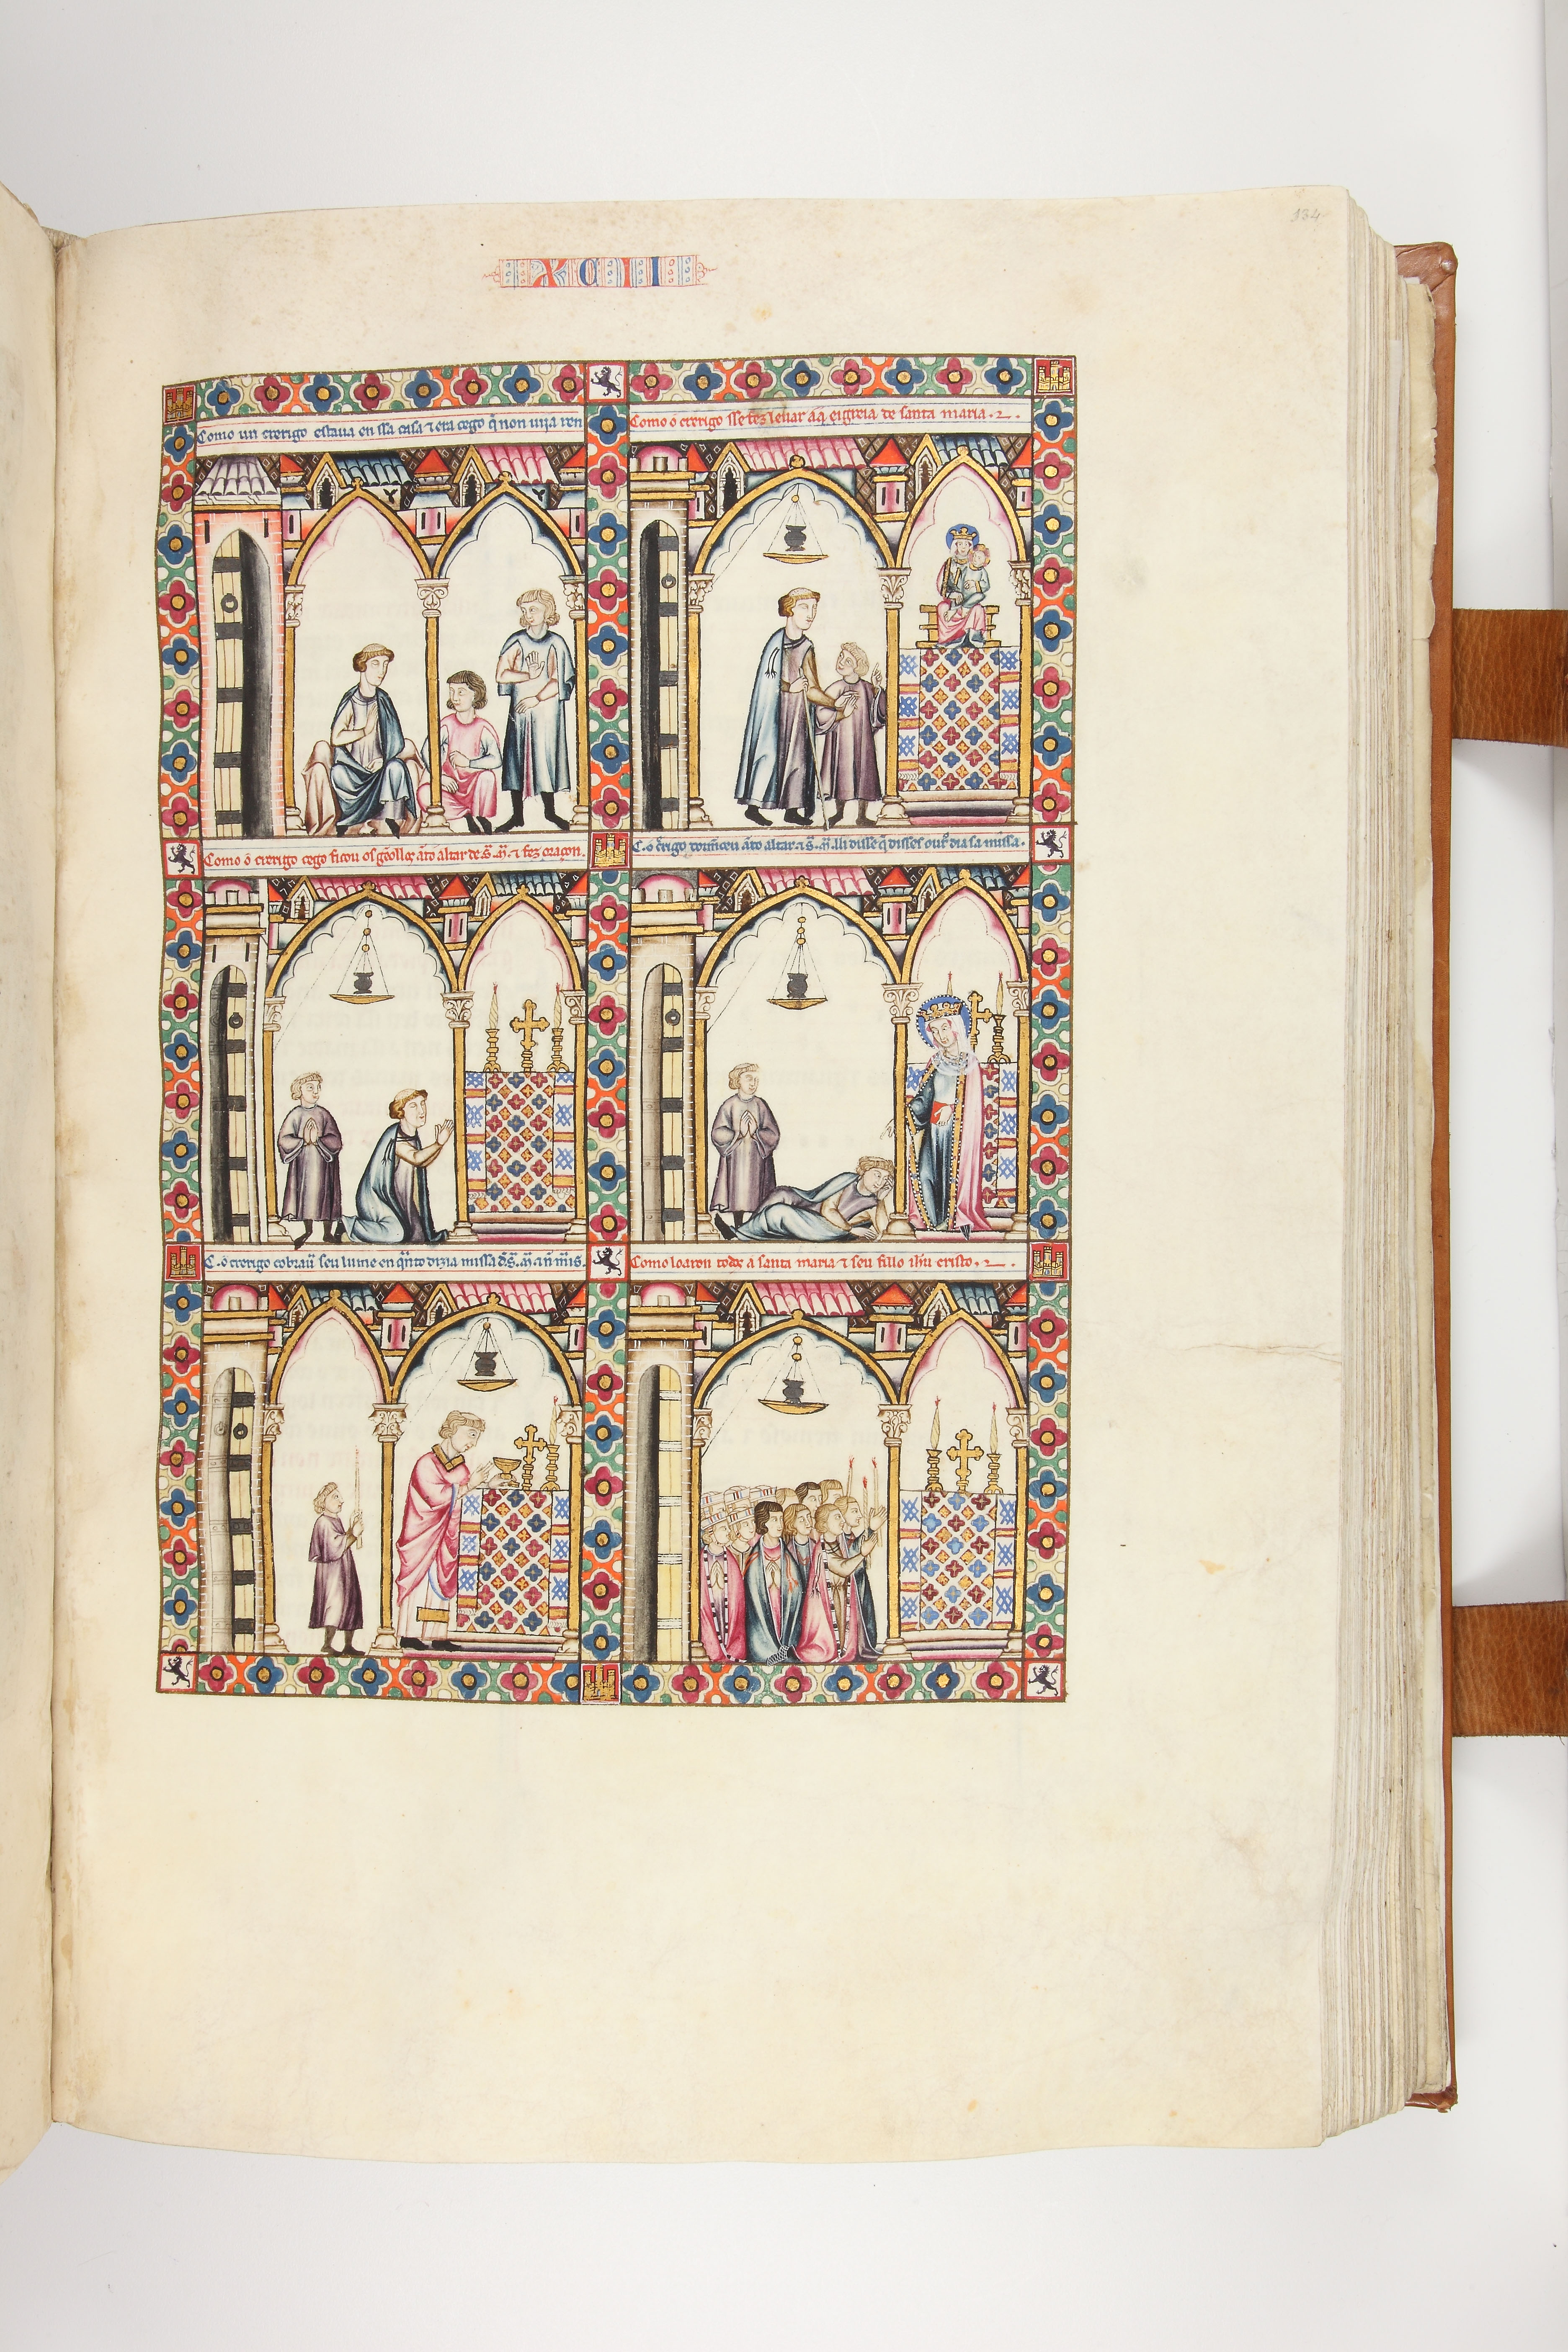 134
XCII
Como un crerigo estaua en ssa casa ⁊ era cego q̃ non uija ren
Como o crerigo sse fez leuar aaq̃ eigreia de santa maria. ⁊.
Como o crerigo cego ficou os gẽollos ãto altar de S. M̃. ⁊ fez oraçon.
C. o c̃rigo dormeceu ãto altar ⁊ S. M̃. lli disse q̃ dissess out' dia sa missa.
C. o crerigo cobraũ seu lume en q̃nto dizia missa d S. M̃.
Como loaron todos a santa maria ⁊ seu fillo ih̃u cristo. ⁊.